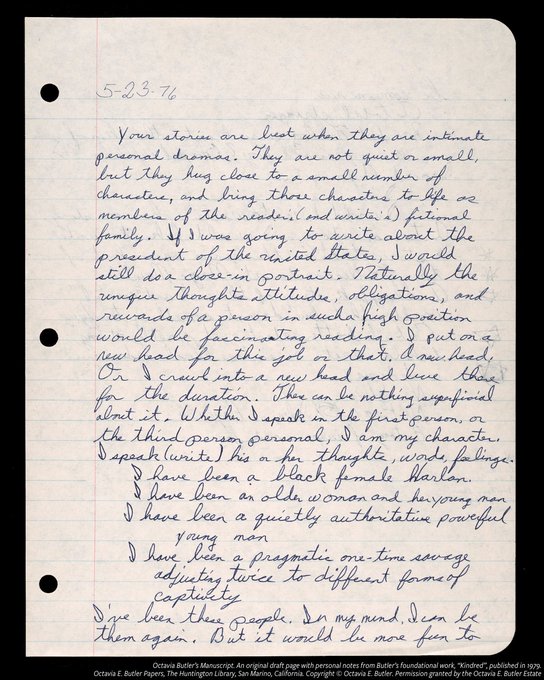 5-23-76
Your stories are best when they are intimate
personal dramas. They are not quiet or small,
but they hug close to a small number of
characters, and bring those characters to life as
members of the reader's (and writer's) fictional
family. If I was going to write about the
president of the United States, I would
still do a close-in portrait. Naturally the
unique thoughts attitudes, obligations, and
rewards of a person in such a high position
would be fascinating reading. I put on a
new head for this job or that. A new head.
Or I crawl into a new head and live there
for the duration. There can be nothing superficial
about it. Whether I speak in the first person, or
the third person personal, I am my character.
I speak (write) his or her thoughts, words, feelings.
I have been a black female Harlan.
I have been an older woman and her young man
I have been a quietly authoritative powerful
young man
I have been a pragmatic one-time savage
adjusting twice to different forms of
captivity
I've been these people. In my mind, I can be
them again. But it would be more fun to
Octavia Butler's Manuscript. An original draft page with personal notes from Butler's foundational work, "Kindred", published in 1979.
Octavia E. Butler Papers, The Huntington Library, San Marino, California. Copyright © Octavia E. Butler. Permission granted by the Octavia E. Butler Estate